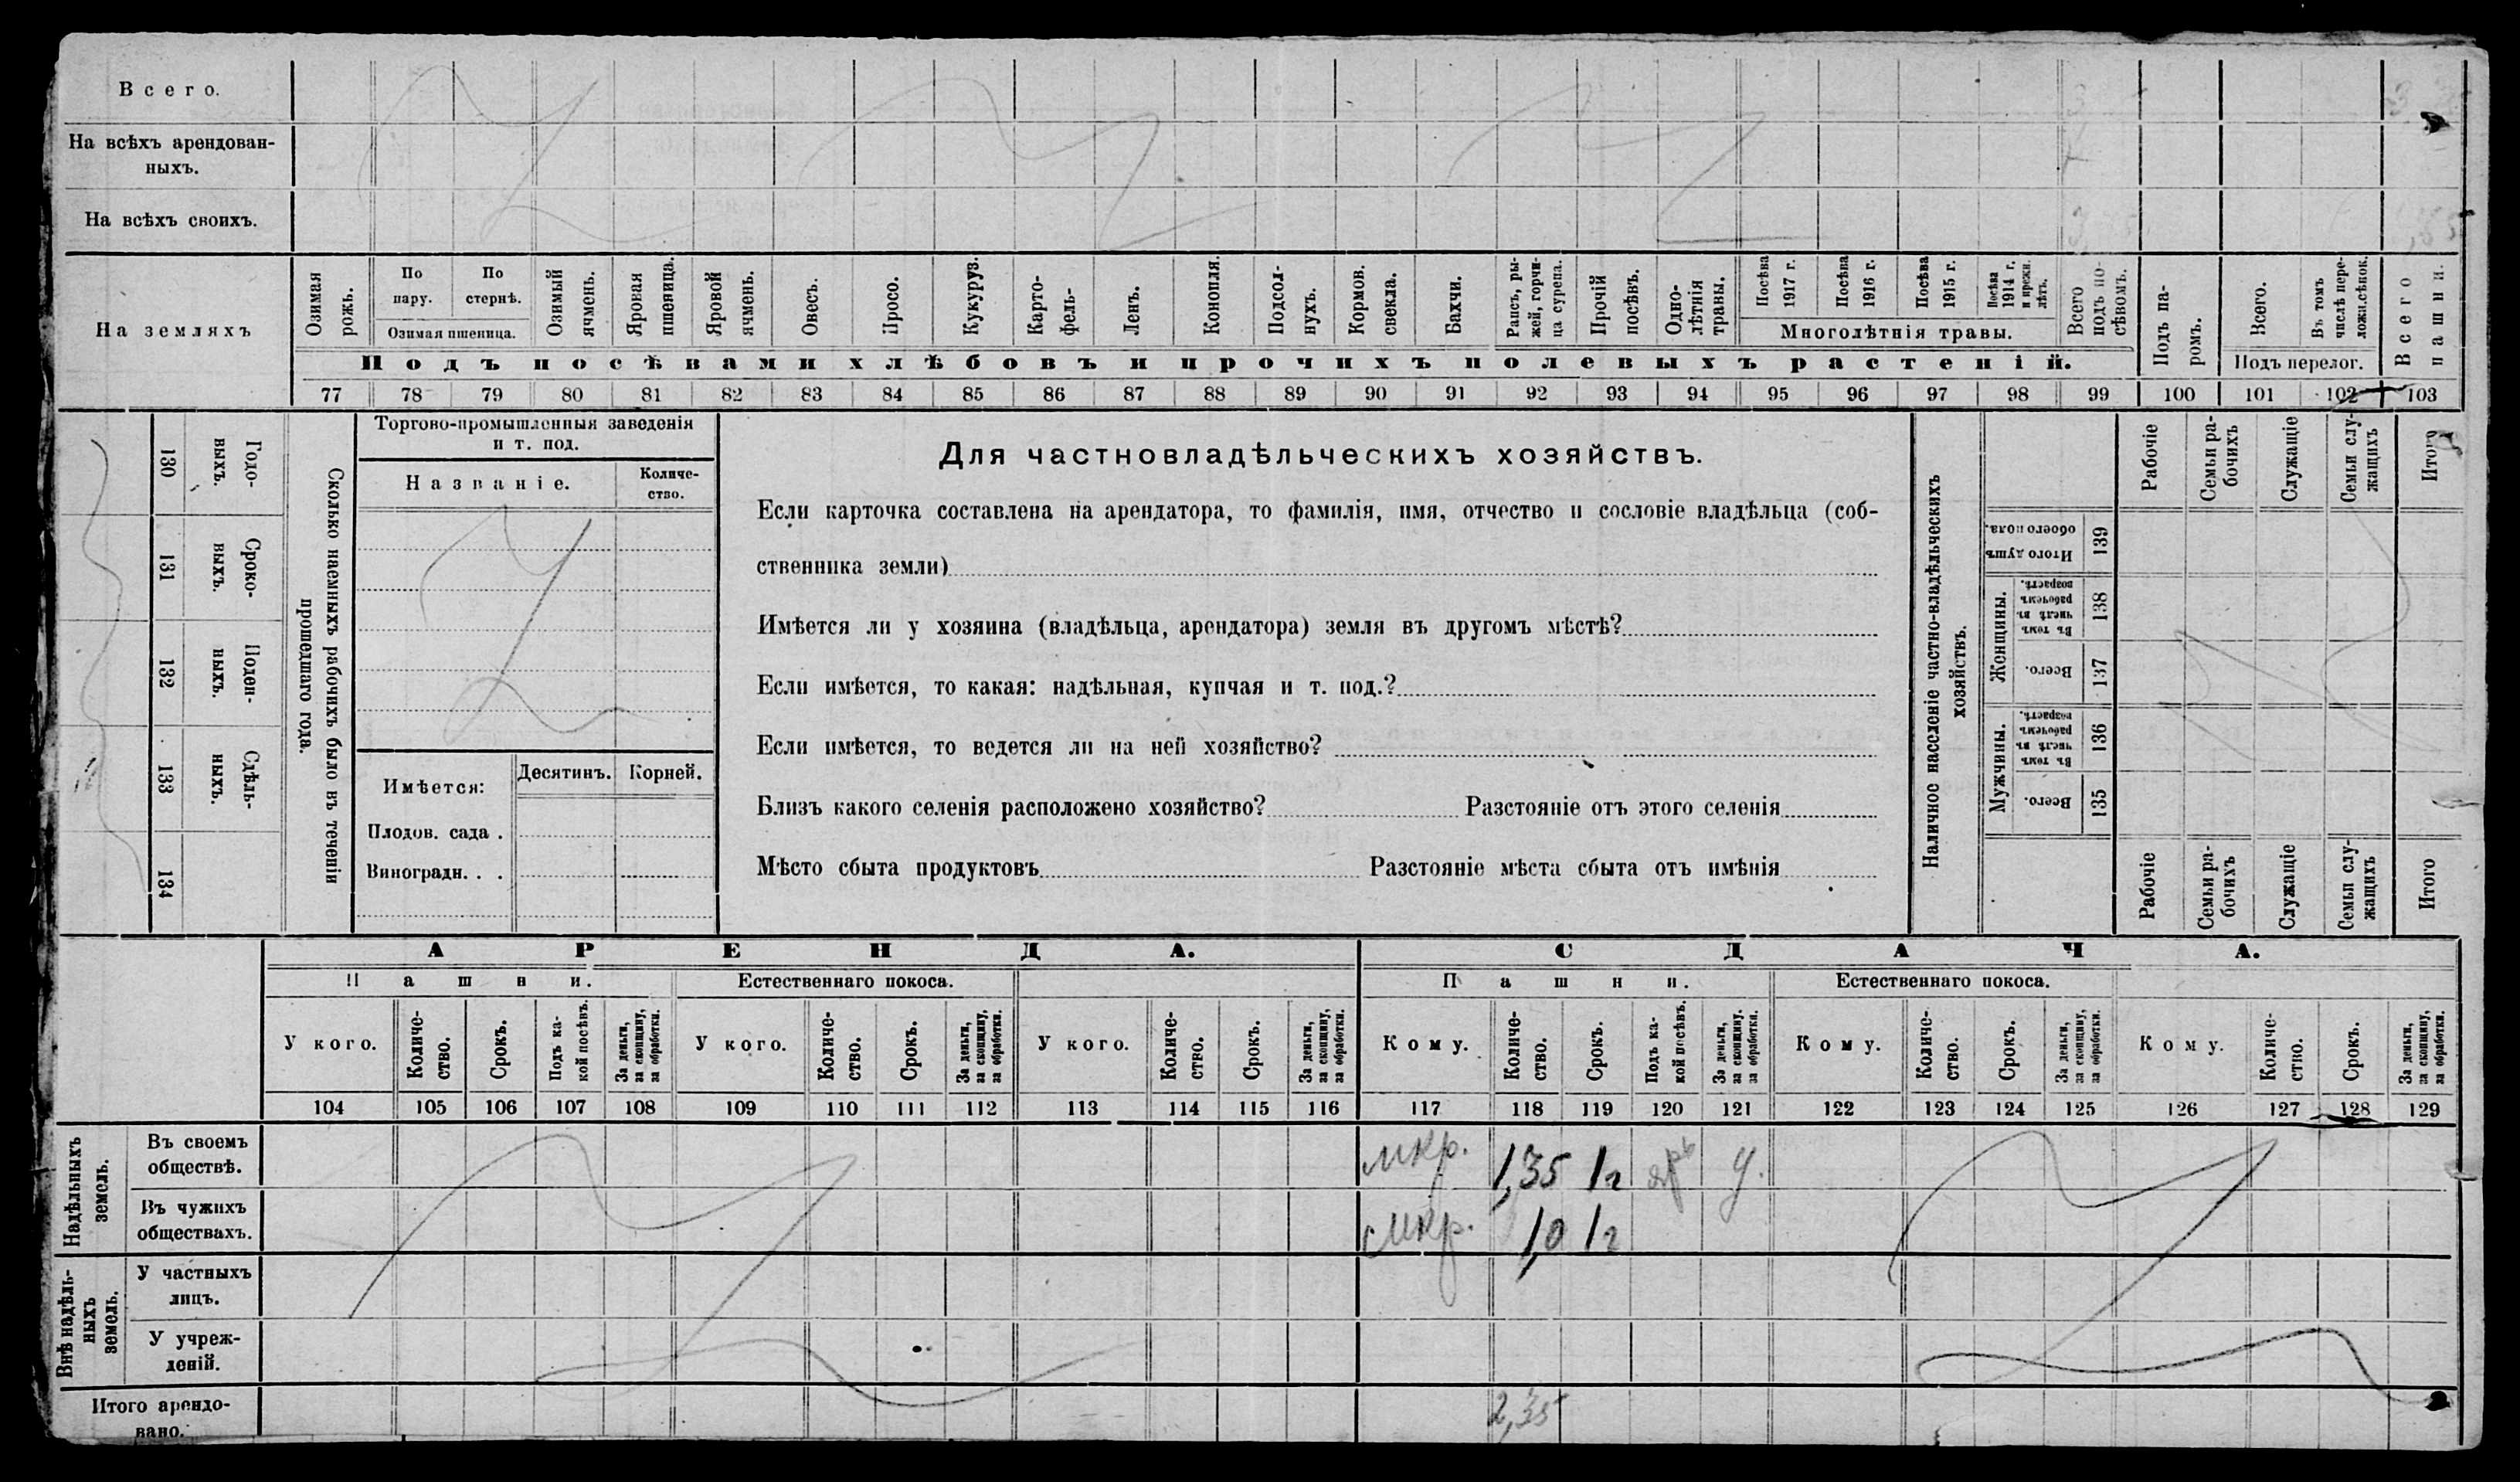 Всего.
На всѣхъ арендован-
ныхъ.
На всѣхъ своихъ.
На земляхъ
Озимая рожь.
По пару.
По стернѣ.
Озимая пшеница.
Озимый ячмень.
Яровая пшеница.
Яровой ячмень.
Овесъ.
Просо.
Кукуруз.
Карто-
фель-
Ленъ.
Конопля.
Подсол-
нухъ.
Кормов.
свекла.
Бахчи.
Рапсъ, ры-
жей, горчи-
ца сурепа.
Прочій посѣвъ.
Одно-
лѣтнія травы.
Посѣва 1917 г.
Посѣва 1916 г.
Посѣва 1915 г.
Посѣва 1914 г. и прежн. лѣтъ.
Многолѣтнія травы.
Всего подъ по-
сѣвомъ.
Подъ посѣвами хлѣбовъ и прочихъ полевыхъ растеній.
Подъ па-
ромъ.
Всего.
Въ томъ числѣ пере-
ложн.сѣнок.
Подъ перелог.
Всего пашни.
77 78 79 80 81 82 83 84 85 86 87 88 89 90 91 92 93 94 95 96 97 98 99 100 101 102 103
130 Годо-
выхъ.
131 Сроко-
выхъ.
132 Поден-
ныхъ.
133 Сдѣль-
ныхъ.
134
Сколько наемныхъ рабочихъ было въ теченіи
прошедшаго года.
Торгово-промышленныя заведенія
и т. под.
Названіе.
Количе-
ство.
Имѣется:
Десятинъ. Корней.
Плодов. сада .
Виноградн. . .
Для частновладѣльческихъ хозяйствъ.
Если карточка составлена на арендатора, то фамилія, имя, отчество и сословіе владѣльца (соб-
ственника земли)
Имѣется ли у хозяина (владѣльца, арендатора) земля въ другомъ мѣстѣ?
Если имѣется, то какая: надѣльная, купчая и т. под.?
Если имѣется, то ведется ли на ней хозяйство?
Близъ какого селенія расположено хозяйство? Разстояніе отъ этого селенія
Мѣсто сбыта продуктовъ Разстояніе мѣста сбыта отъ имѣнія
Наличное населеніе частно-владѣльческихъ
хозяйствъ.
Рабочіе
Семьи ра-
бочихъ
Служащіе
Семьи слу-
жащихъ
Итого
Итого душъ обоего пола. 139
Женщины.
Въ томъ числѣ въ рабочемъ возрастѣ. 138
Всего. 137
Мужчины.
Въ томъ числѣ въ рабочемъ возрастѣ. 136
Всего. 135
Рабочіе
Семьи ра-
бочихъ
Служащіе
Семьи слу-
жащихъ
Итого
АРЕНДА. СДАЧА.
Пашни. Естественнаго покоса. Пашни. Естественнаго покоса.
У кого.
Количе-
ство.
Срокъ.
Подъ ка-
кой посѣвъ.
За деньги, за скопщину, за обработки.
У кого.
Количе-
ство.
Срокъ.
За деньги, за скопщину, за обработки.
У кого.
Количе-
ство.
Срокъ.
За деньги, за скопщину, за обработки.
Кому.
Количе-
ство.
Срокъ.
Подъ ка-
кой посѣвъ.
За деньги, за скопщину, за обработки.
Кому.
Количе-
ство.
Срокъ.
За деньги, за скопщину, за обработки.
Кому.
Количе-
ство.
Срокъ.
За деньги, за скопщину, за обработки.
104 105 106 107 108 109 110 111 112 113 114 115 116 117 118 119 120 121 122 123 124 125 126 127 128 129
Надѣльныхъ земель.
Въ своемъ
обществѣ.
1,35 1г
Въ чужихъ
обществахъ.
1,0 1г
Внѣ надѣль-
ныхъ земель.
У частныхъ
лицъ.
У учреж-
деній.
Итого арендо-
вано.
2,35